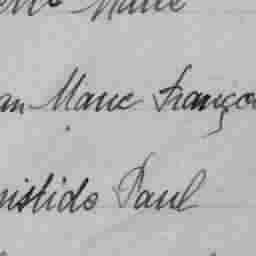 Marie
an Marie Françoi
nistide Paul